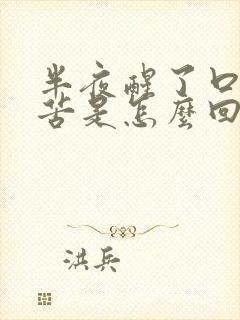 半夜醒了口
苦是怎麼回
洪兵